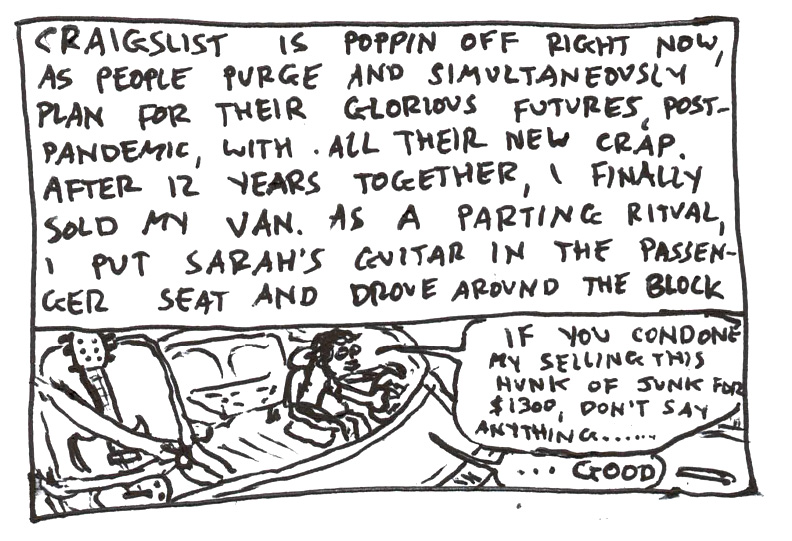 CRAIGSLIST IS POPPIN OFF RIGHT NOW,
AS PEOPLE PURGE AND SIMULTANEOUSLY
PLAN FOR THEIR GLORIOUS FUTURES, POST-
PANDEMIC, WITH ALL THEIR NEW CRAP.
AFTER 12 YEARS TOGETHER, I FINALLY
SOLD MY VAN. AS A PARTING RITUAL,
I PUT SARAH'S GUITAR IN THE PASSEN-
GER SEAT AND DROVE AROUND THE BLOCK
IF YOU CONDONE
MY SELLING THIS
HUNK OF JUNK FOR
$1300, DON'T SAY
ANYTHING......
... GOOD